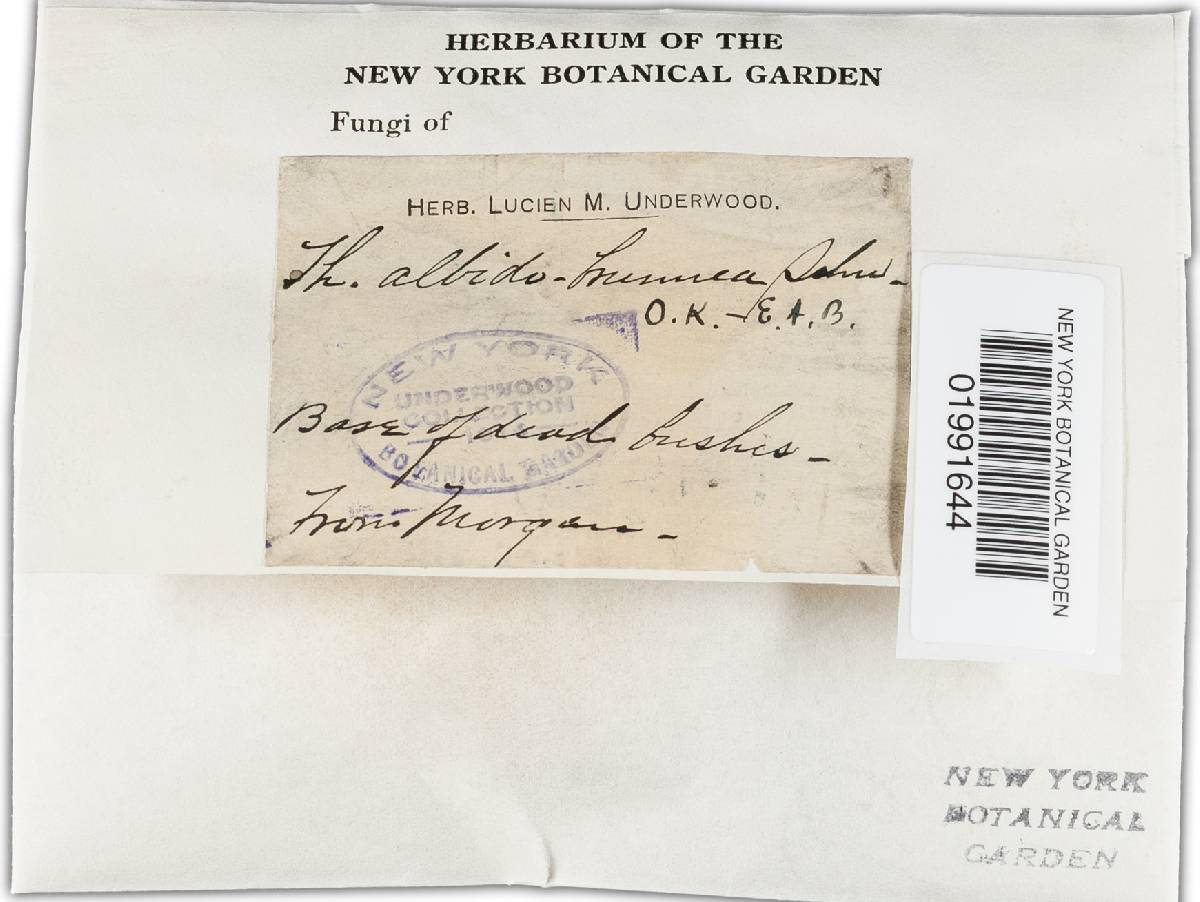 HERBARIUM OF THE
NEW YORK BOTANICAL GARDEN
Fungi of
HERB. LUCIEN M. UNDERWOOD.
Th. albido-brunnea Schw-
O.K. - E.A.B.
NEW YORK
UNDERWOOD
COLLECTION
BOTANICAL GARDEN
Base of dead bushes -
From Morgan -
NEW YORK BOTANICAL GARDEN
01991644
NEW YORK
BOTANICAL
GARDEN